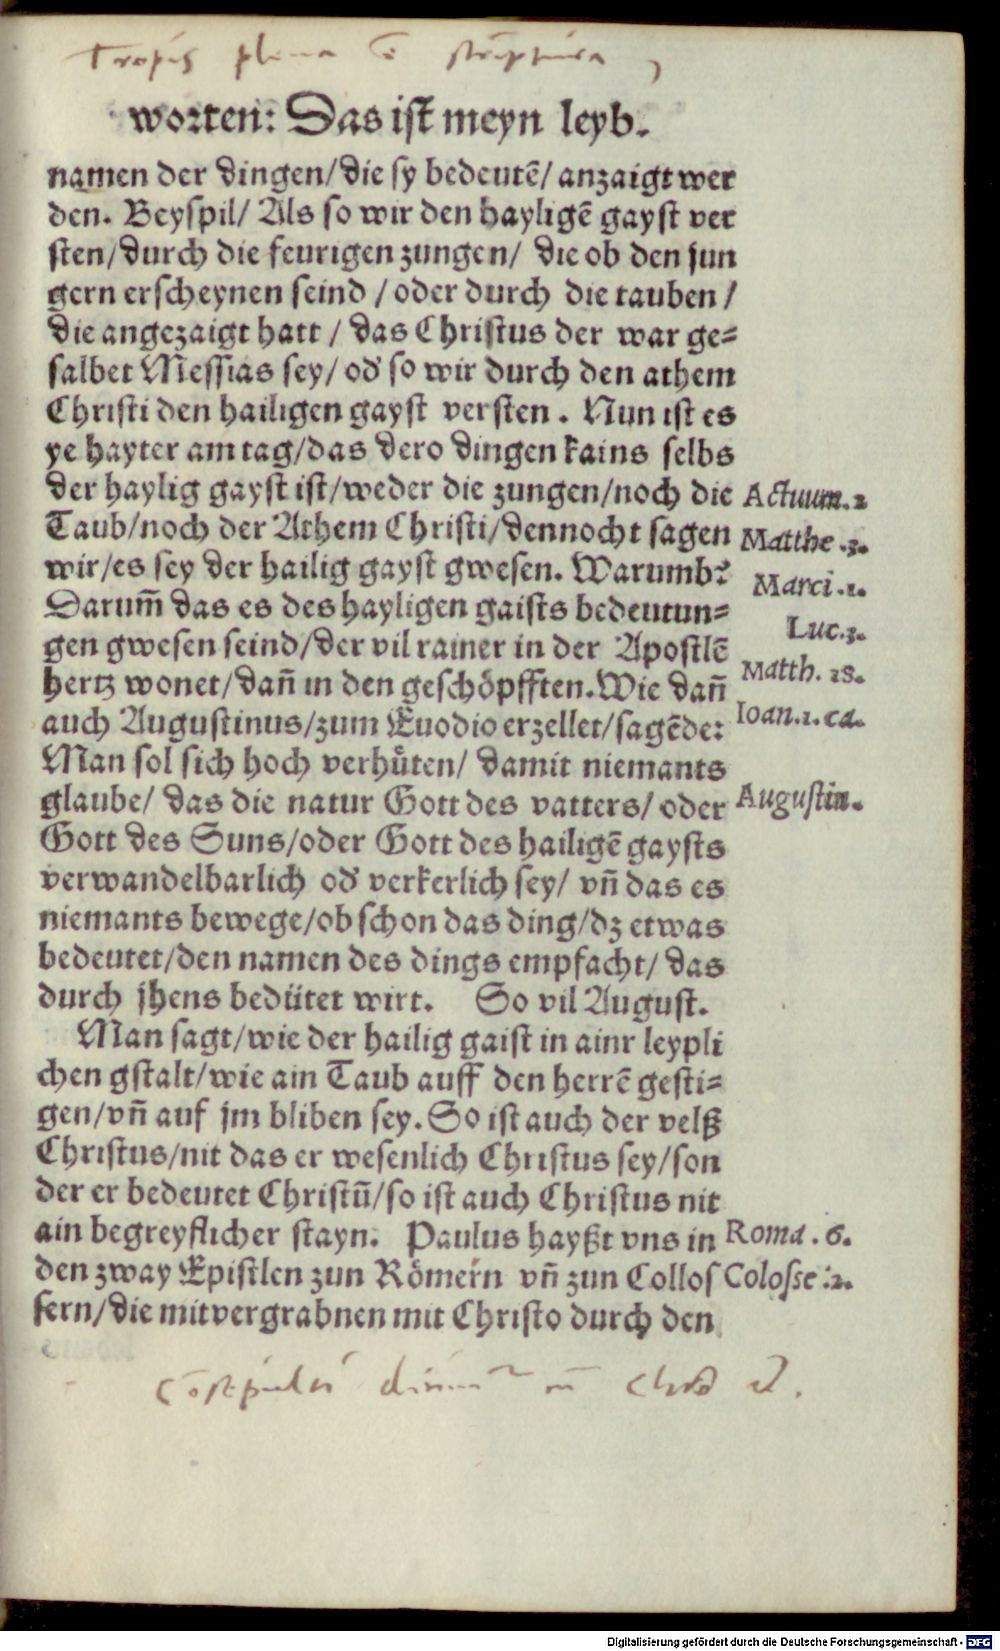 Tropis plena e scriptura,
worten: Das ist meyn leyb.
namen der dingen/die sy bedeutē/ anzaigt wer
den. Beyspil/ Als so wir den hayligē gayst ver
sten/durch die feurigen zungen/ die ob den jun
gern erscheynen seind /oder durch die tauben /
die angezaigt hatt / das Christus der war ge-
salbet Messias sey/ od' so wir durch den athem
Christi den hailigen gayst versten. Nun ist es
ye hayter am tag/das dero dingen kains selbs
der haylig gayst ist/weder die zungen/noch die
Taub/noch der Athem Christi/dennocht sagen
wir/es sey der hailig gayst gwesen. Warumb?
Darum̄ das es des hayligen gaists bedeutun-
gen gwesen seind/der vil rainer in der Apostlē
hertz wonet/dañ in den geschöpfften. Wie dañ
auch Augustinus/zum Euodio erzellet/sagēde:
Man sol sich hoch verhuͤten/ damit niemants
glaube/ das die natur Gott des vatters/ oder
Gott des Suns/oder Gott des hailigē gaysts
verwandelbarlich od' verkerlich sey/ vñ das es
niemants bewege/ob schon das ding/dz etwas
bedeutet/den namen des dings empfacht/ das
durch jhens bedütet wirt. So vil August.
Man sagt/wie der hailig gaist in ainr leypli
chen gstalt/wie ain Taub auff den herrē gesti-
gen/vñ auf jm bliben sey. So ist auch der velß
Christus/nit das er wesenlich Christus sey/son
der er bedeutet Christū/so ist auch Christus nit
ain begreyflicher stayn. Paulus hayßt vns in
den zway Epistlen zun Römern vñ zun Collos
sern/die mitvergrabnen mit Christo durch den
Actuum.2
Matthe.3.
Marci.1.
Luc.3.
Matth.28.
Ioan.1.ca.
Augustin.
Roma.6.
Colosse:2.
Digitalisierung gefördert durch die Deutsche Forschungsgemeinschaft - DFG